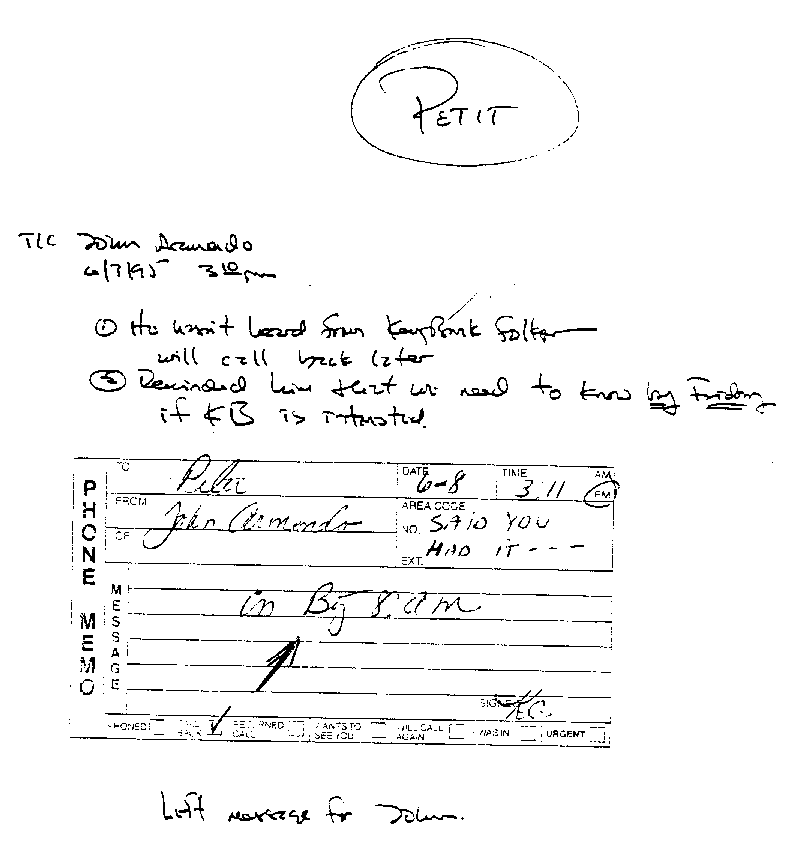 PETIT
T/C John Armando
6/7/95 3 10 pm
① He hasn't heard from KeyBank folks
will call back later
② Reminded him that we need to know by Friday
if KB is interested.
PHONE MEMO
TO DATE 6-8 TIME 3 11 AM PM
FROM John Armondo AREA CODE
OF NO. SAID YOU
EXT. HAD IT - - -
MESSAGE
in By 8. am
SIGNED KC
PHONED CALL BACK RETURNED CALL WANTS TO SEE YOU WILL CALL AGAIN WAS IN URGENT
Left message for John.